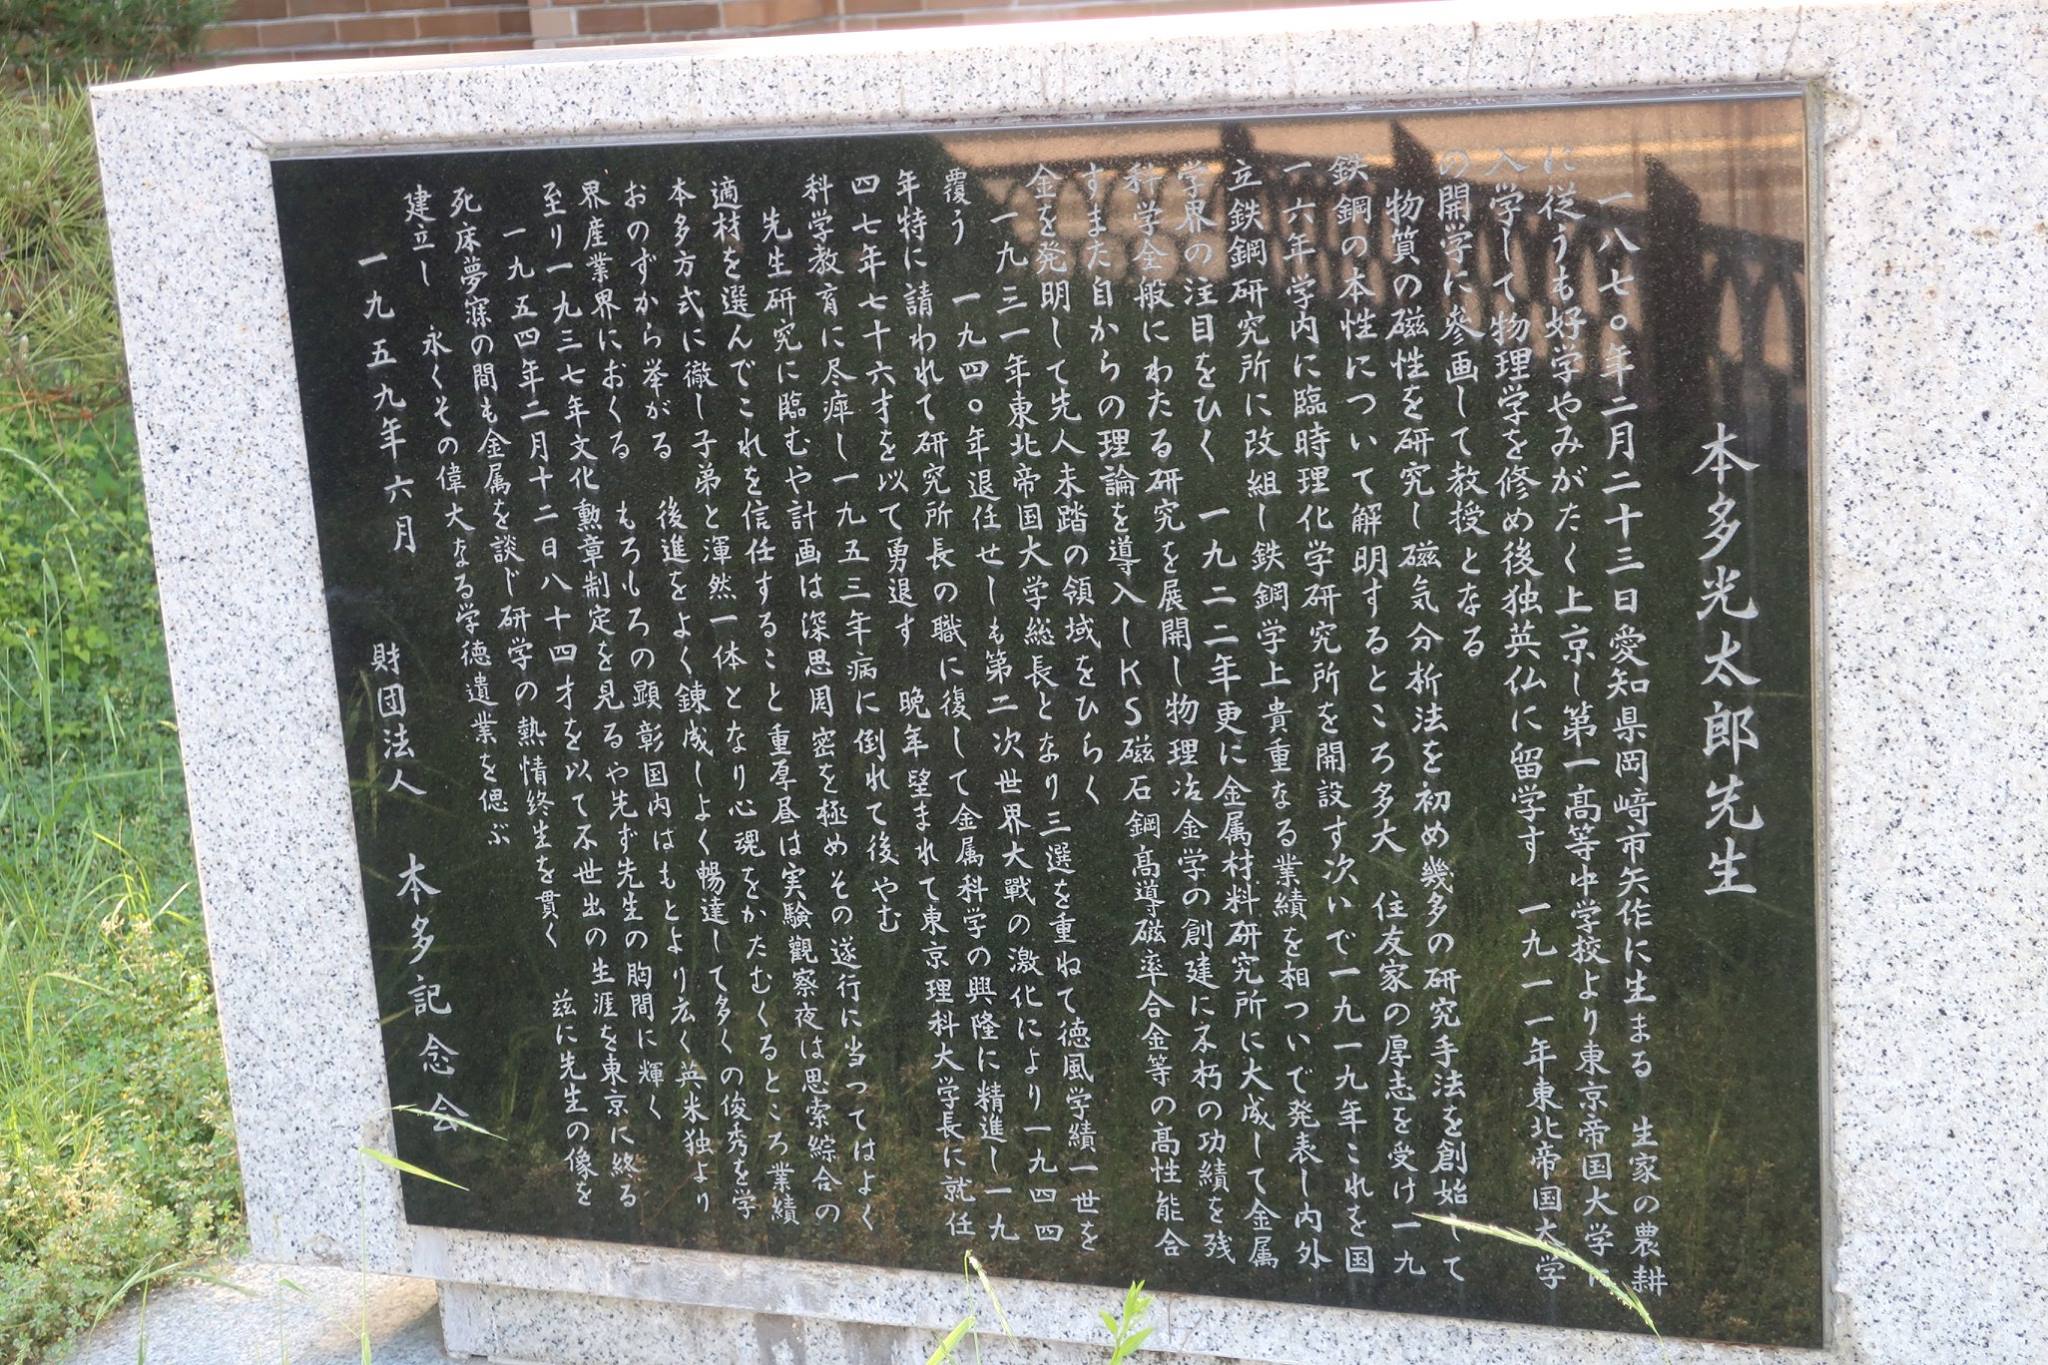 本多光太郎先生
一八七〇年二月二十三日愛知県岡﨑市矢作に生まる　生家の農耕
に従うも好学やみがたく上京し第一高等中学校より東京帝国大学に
入学して物理学を修め後独英仏に留学す　一九一一年東北帝国大学
の開学に参画して教授となる
物質の磁性を研究し磁気分析法を初め幾多の研究手法を創始して
鉄鋼の本性について解明するところ多大　住友家の厚志を受け一九
一六年学内に臨時理化学研究所を開設す次いで一九一九年これを国
立鉄鋼研究所に改組し鉄鋼学上貴重なる業績を相ついで発表し内外
学界の注目をひく　一九二二年更に金属材料研究所に大成して金属
科学全般にわたる研究を展開し物理冶金学の創建に不朽の功績を残
すまた自からの理論を導入しKS磁石鋼髙導磁率合金等の髙性能合
金を発明して先人未踏の領域をひらく
一九三一年東北帝国大学総長となり三選を重ねて徳風学績一世を
覆う　一九四〇年退任せしも第二次世界大戰の激化により一九四四
年特に請われて研究所長の職に復して金属科学の興隆に精進し一九
四七年七十六才を以て勇退す　晩年望まれて東京理科大学長に就任
科学教育に尽瘁し一九五三年病に倒れて後やむ
先生研究に臨むや計画は深思周密を極めその遂行に当ってはよく
適材を選んでこれを信任すること重厚昼は実験觀察夜は思索綜合の
本多方式に徹し子弟と渾然一体となり心魂をかたむくるところ業績
おのずから挙がる　後進をよく錬成しよく暢達して多くの俊秀を学
界産業界におくる　もろもろの顕彰国内はもとより広く英米独より
至り一九三七年文化勲章制定を見るや先ず先生の胸間に輝く
一九五四年二月十二日八十四才を以て不世出の生涯を東京に終る
死床夢寐の間も金属を談じ研学の熱情終生を貫く　茲に先生の像を
建立し　永くその偉大なる学徳遺業を偲ぶ
一九五九年六月　財団法人　本多記念会